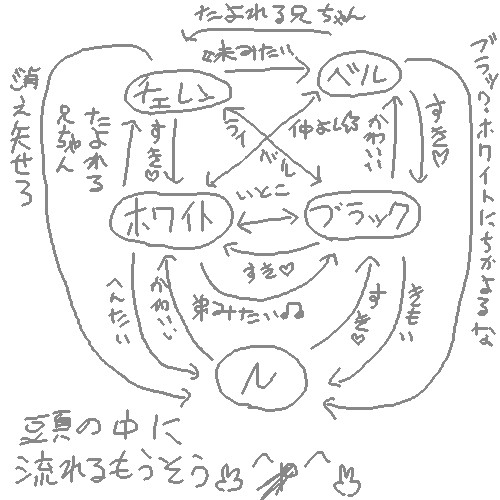 たよれる兄ちゃん
妹みたい
チェレン
ベル
消え失せろ
たよれる
兄ちゃん
すき♡
ライバル
仲よし
かわいい
すき♡
ブラック・ホワイトにちかよるな
ホワイト
いとこ
ブラック
すき♡
弟みたい♫
へんたい
かわいい
すき♡
きもい
N
頭の中に
流れるもうそう